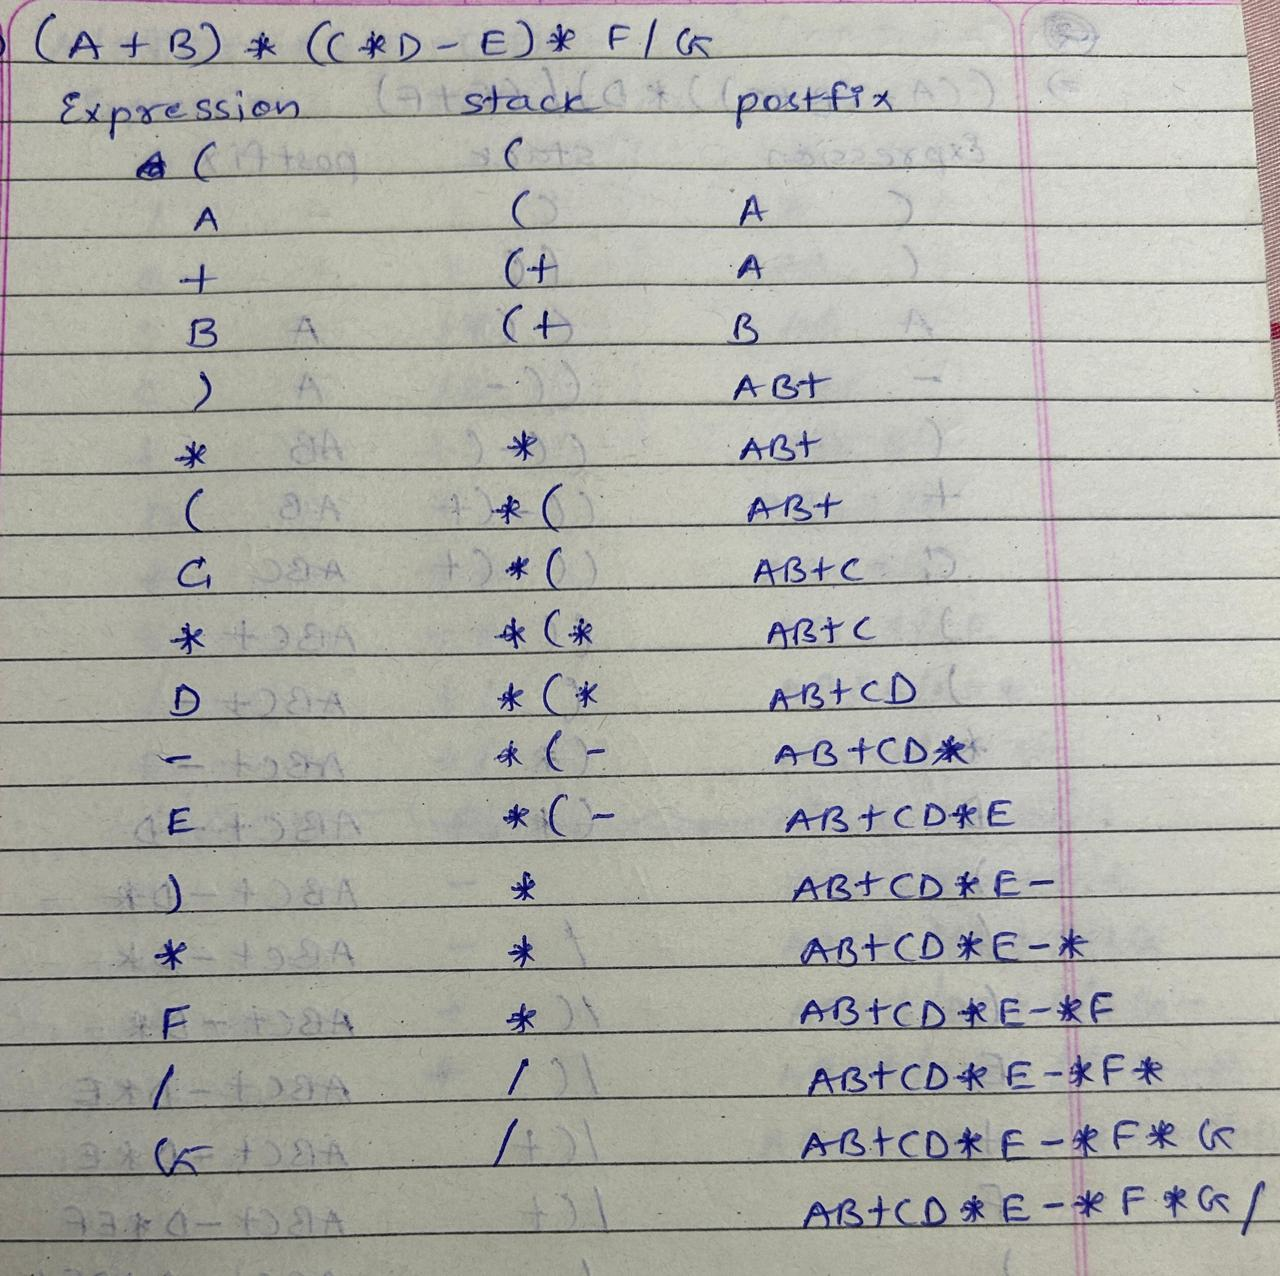 (A + B) * (C * D - E) * F / G
Expression stack postfix
( (
A ( A
+ (+ A
B (+ B
) AB+
* * AB+
( *( AB+
C *( AB+C
* *(* AB+C
D *(* AB+CD
- *(- AB+CD*
E *(- AB+CD*E
) * AB+CD*E-
* * AB+CD*E-*
F * AB+CD*E-*F
/ / AB+CD*E-*F*
G / AB+CD*E-*F*G
AB+CD*E-*F*G/